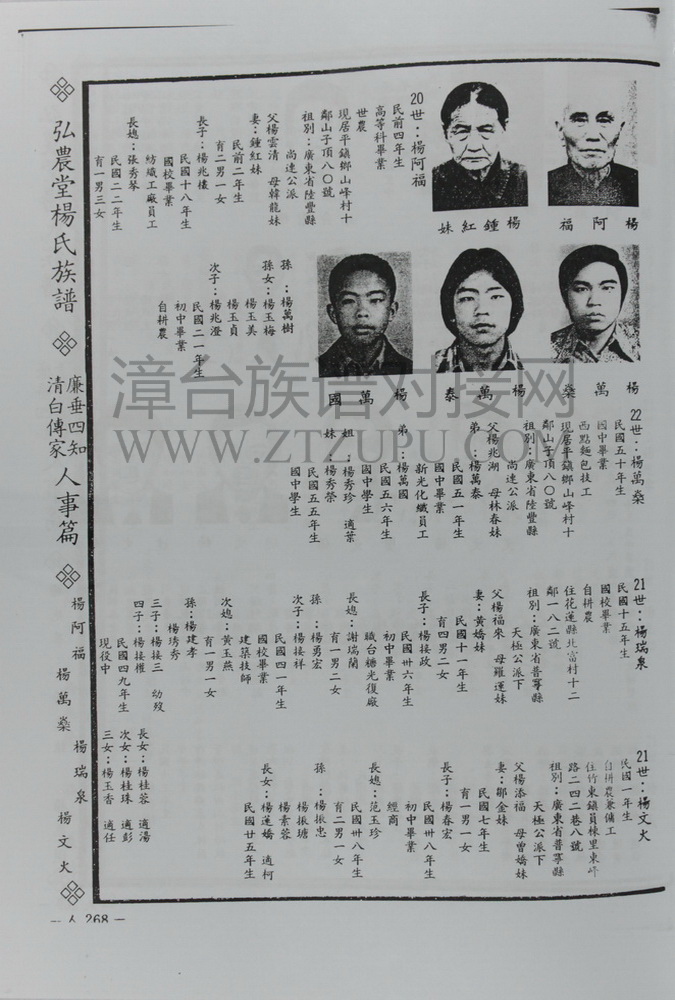 楊阿福
楊鍾紅妹
楊萬燊
楊萬泰
楊萬國
20世：楊阿福
民前四年生
高等科畢業
世農
現居平鎮鄉山峰村十
鄰山子頂八〇號
祖別：廣東省陸豐縣
尚達公派
父楊雲清 母韓龍妹
妻：鍾紅妹
民前二年生
育二男一女
長子：楊兆樓
民國十八年生
國校畢業
紡織工廠員工
長媳：張秀琴
民國二二年生
育一男三女
孫：楊萬樹
孫女：楊玉梅
楊玉美
楊玉貞
次子：楊兆澄
民國二一年生
初中畢業
自耕農
22世：楊萬燊
民國五十年生
國中畢業
西點麵包技工
現居平鎮鄉山峰村十
鄰山子頂八〇號
祖別：廣東省陸豐縣
尚達公派
父楊兆湖 母林春妹
弟：楊萬泰
民國五一年生
國中畢業
新光化纖員工
弟：楊萬國
民國五六年生
國中學生
姐：楊秀珍 適葉
妹：楊秀榮
民國五五年生
國中學生
21世：楊瑞泉
民國十五年生
國校畢業
自耕農
住花蓮縣北富村十二
鄰一八二號
祖別：廣東省普寧縣
天極公派下
父楊福來 母羅運妹
妻：黃嬌妹
民國十一年生
育四男二女
長子：楊接政
民國卅六年生
初中畢業
職台糖光復廠
長媳：謝瑞蘭
育一男二女
孫：楊勇宏
次子：楊接祥
民國四一年生
國校畢業
建築技師
次媳：黃玉燕
育一男一女
孫：楊建孝
楊琇秀
三子：楊接三 幼歿
四子：楊接權
民國四九年生
現役中
21世：楊文火
民國一年生
自耕農兼傭工
住竹東鎮員棟里東峰
路二四二巷八號
祖別：廣東省普寧縣
天極公派下
父楊添福 母曾嬌妹
妻：鄒金妹
民國七年生
育一男一女
長子：楊春宏
民國卅八年生
初中畢業
經商
長媳：范玉珍
民國卅八年生
育二男一女
孫：楊振忠
楊振瑭
楊素蓉
長女：楊蓮嬌 適柯
民國廿五年生
長女：楊桂蓉 適湯
次女：楊桂珠 適彭
三女：楊玉香 適任
弘農堂楊氏族譜
廉垂四知
清白傳家
人事篇
楊阿福 楊萬燊 楊瑞泉 楊文火
— 人 268 —
漳台族谱对接网
WWW.ZTZUPU.COM